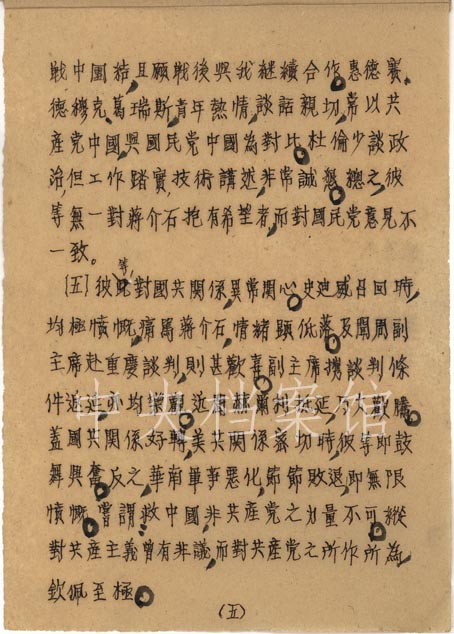 戰中團結，且願戰後與我継續合作。惠德賽、
德穆克、葛瑞斯，青年熱情，談話親切，常以共
產党中國與國民党中國為對比。杜倫少談政
治，但工作踏實，技術講述，非常誠懇。總之，彼
等無一對蔣介石抱有希望者，而對國民党意見不
一致。
〔五〕彼等對國共関係，異常関心。史迪威召回時，
均極憤慨，痛罵蔣介石，情緒頗低落。及聞周副
主席赴重慶談判，則甚歡喜。副主席携談判條
件返延，亦均 近 赫爾利延，乃大歡騰。
蓋國共関係好轉，美共関係蒸切時，彼等即鼓
舞興奮。反之，華南軍事惡化，節節敗退，即無限
憤慨。嘗謂，救中國，非共產党之力量不可。縱
對共產主義曾有非議，而對共產党之所作所為，
欽佩至極。
(五)
中央档案馆